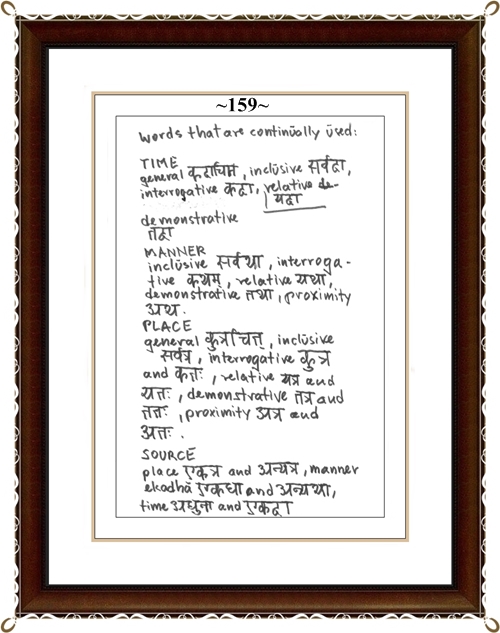 ~159~
words that are continūally ūsed:
TIME
general कदाचित्त, inclūsive सर्वदा,
interrogative कदा, relative de-
यदा
demonstrative
तदा
MANNER
inclūsive सर्वथा, interroga-
tive कथम्, relative यथा,
demonstrative तथा, proximity
अथ.
PLACE
general कुत्रचित्त्, inclūsive
सर्वत्र, interrogative कुत्र
and कतः, relative यत्र and
यतः, demonstrative तत्र and
ततः, proximity अत्र and
अतः.
SOURCE
place एकत्र and अन्यत्र, manner
ekadhā एकधा and अन्यथा,
time अधुना and एकदा